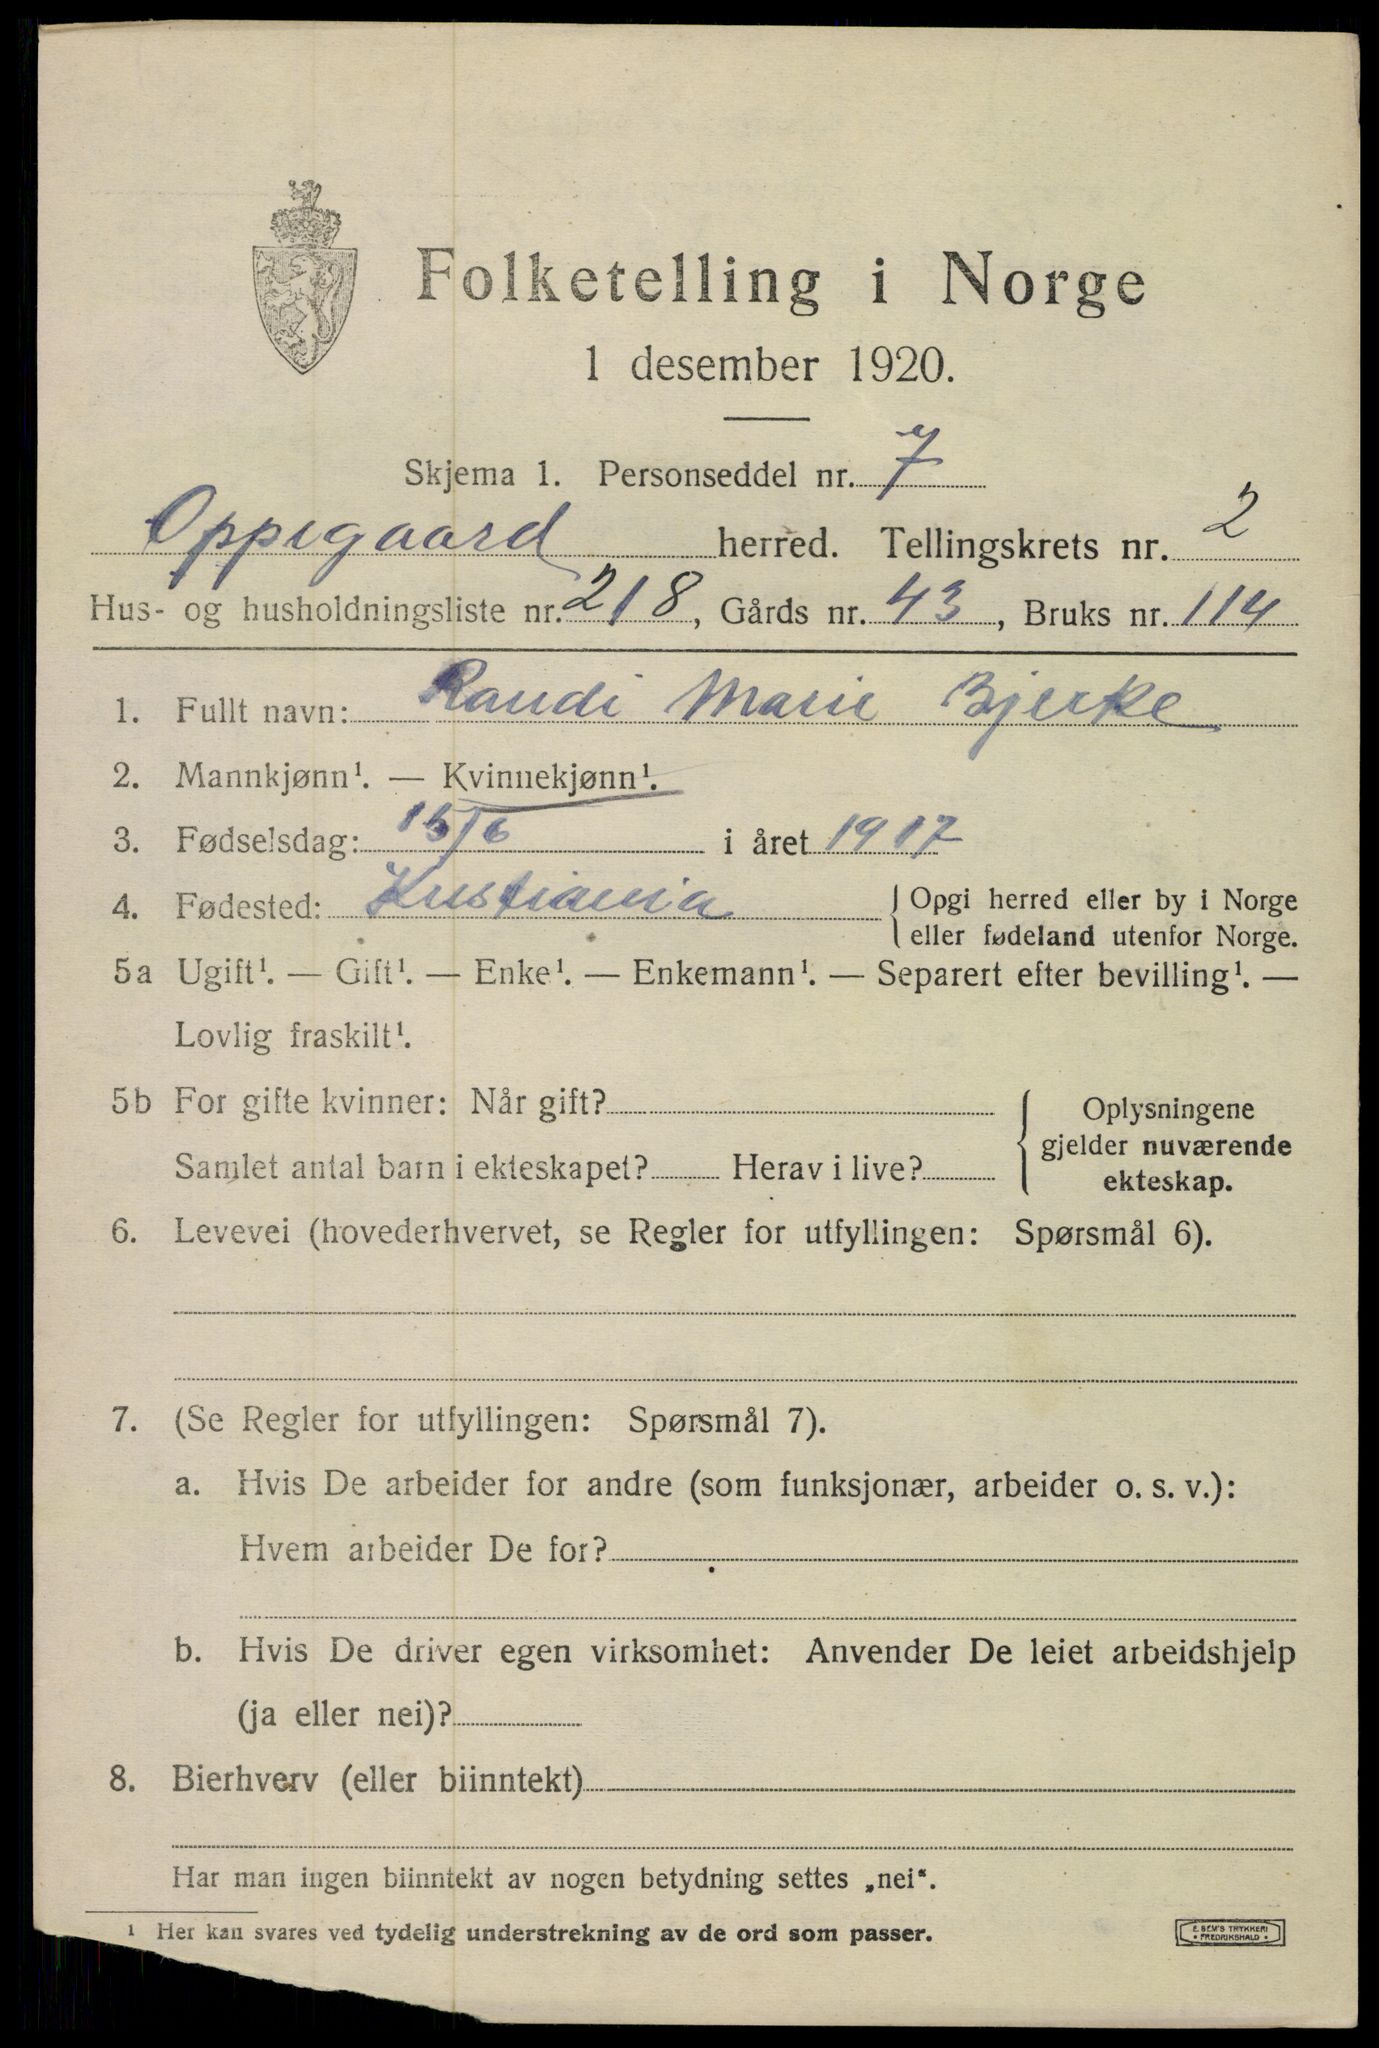 Folketelling i Norge
1 desember 1920.
Skjema 1. Personseddel nr. 7
Oppegaard herred. Tellingskrets nr. 2
Hus- og husholdningsliste nr. 218, Gårds nr. 43, Bruks nr. 114
1. Fullt navn: Randi Marie Bjerke
2. Mannkjønn¹. — Kvinnekjønn¹.
3. Fødselsdag: 15/6 i året 1917
4. Fødested: Kristiania { Opgi herred eller by i Norge
eller fødeland utenfor Norge.
5a Ugift¹. — Gift¹. — Enke¹. — Enkemann¹. — Separert efter bevilling¹. —
Lovlig fraskilt¹.
5b For gifte kvinner: Når gift?
Samlet antal barn i ekteskapet? Herav i live?
Oplysningene
gjelder nuværende
ekteskap.
6. Levevei (hovederhvervet, se Regler for utfyllingen: Spørsmål 6).
7. (Se Regler for utfyllingen: Spørsmål 7).
a. Hvis De arbeider for andre (som funksjonær, arbeider o. s. v.):
Hvem arbeider De for?
b. Hvis De driver egen virksomhet: Anvender De leiet arbeidshjelp
(ja eller nei)?
8. Bierhverv (eller biinntekt)
Har man ingen biinntekt av nogen betydning settes „nei“.
¹ Her kan svares ved tydelig understrekning av de ord som passer.
E. SEM'S TRYKKERI
• FREDRIKSHALD •